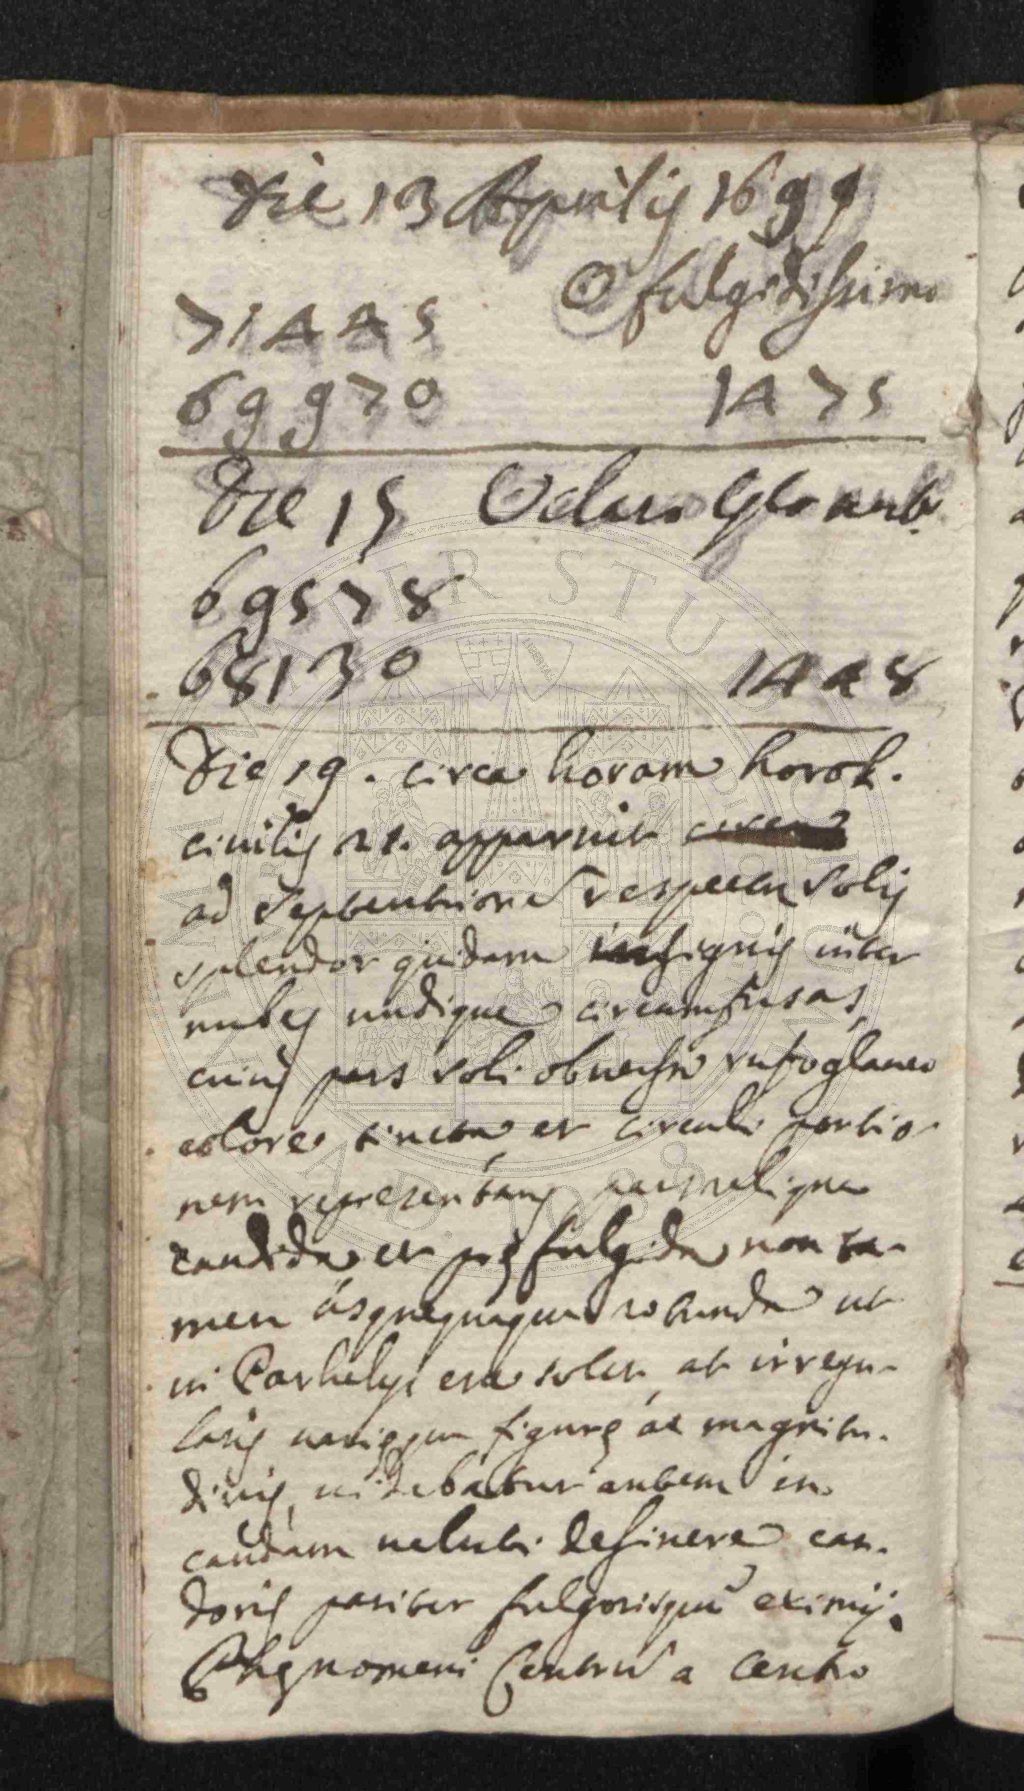 Die 13 Aprilis 1699
☉ fulgidissimo
71445
69970 1475
Die 15 ☉ claro
69578
68130 1448
Die 19. circa horam horol.
civilis 21. apparuit circa
ad Septentrionē respectu Solis
splendor quidam insignis inter
nubes undique circumfusas,
cuius pars Soli obversa rufoglauco
colore tincta, et circuli portio-
nem representans, pars reliqua
candida et pręfulgida non ta-
men usquequaque rotunda ut
in Parhelijs esse solet, at irregu-
laris varięque figurę ac magnitu-
dinis, videbatur autem in
caudam veluti desinere can-
doris pariter fulgorisque eximij.
Phęnomeni Centrū a centro
ALMA MATER STUDIORUM A.D. 1088